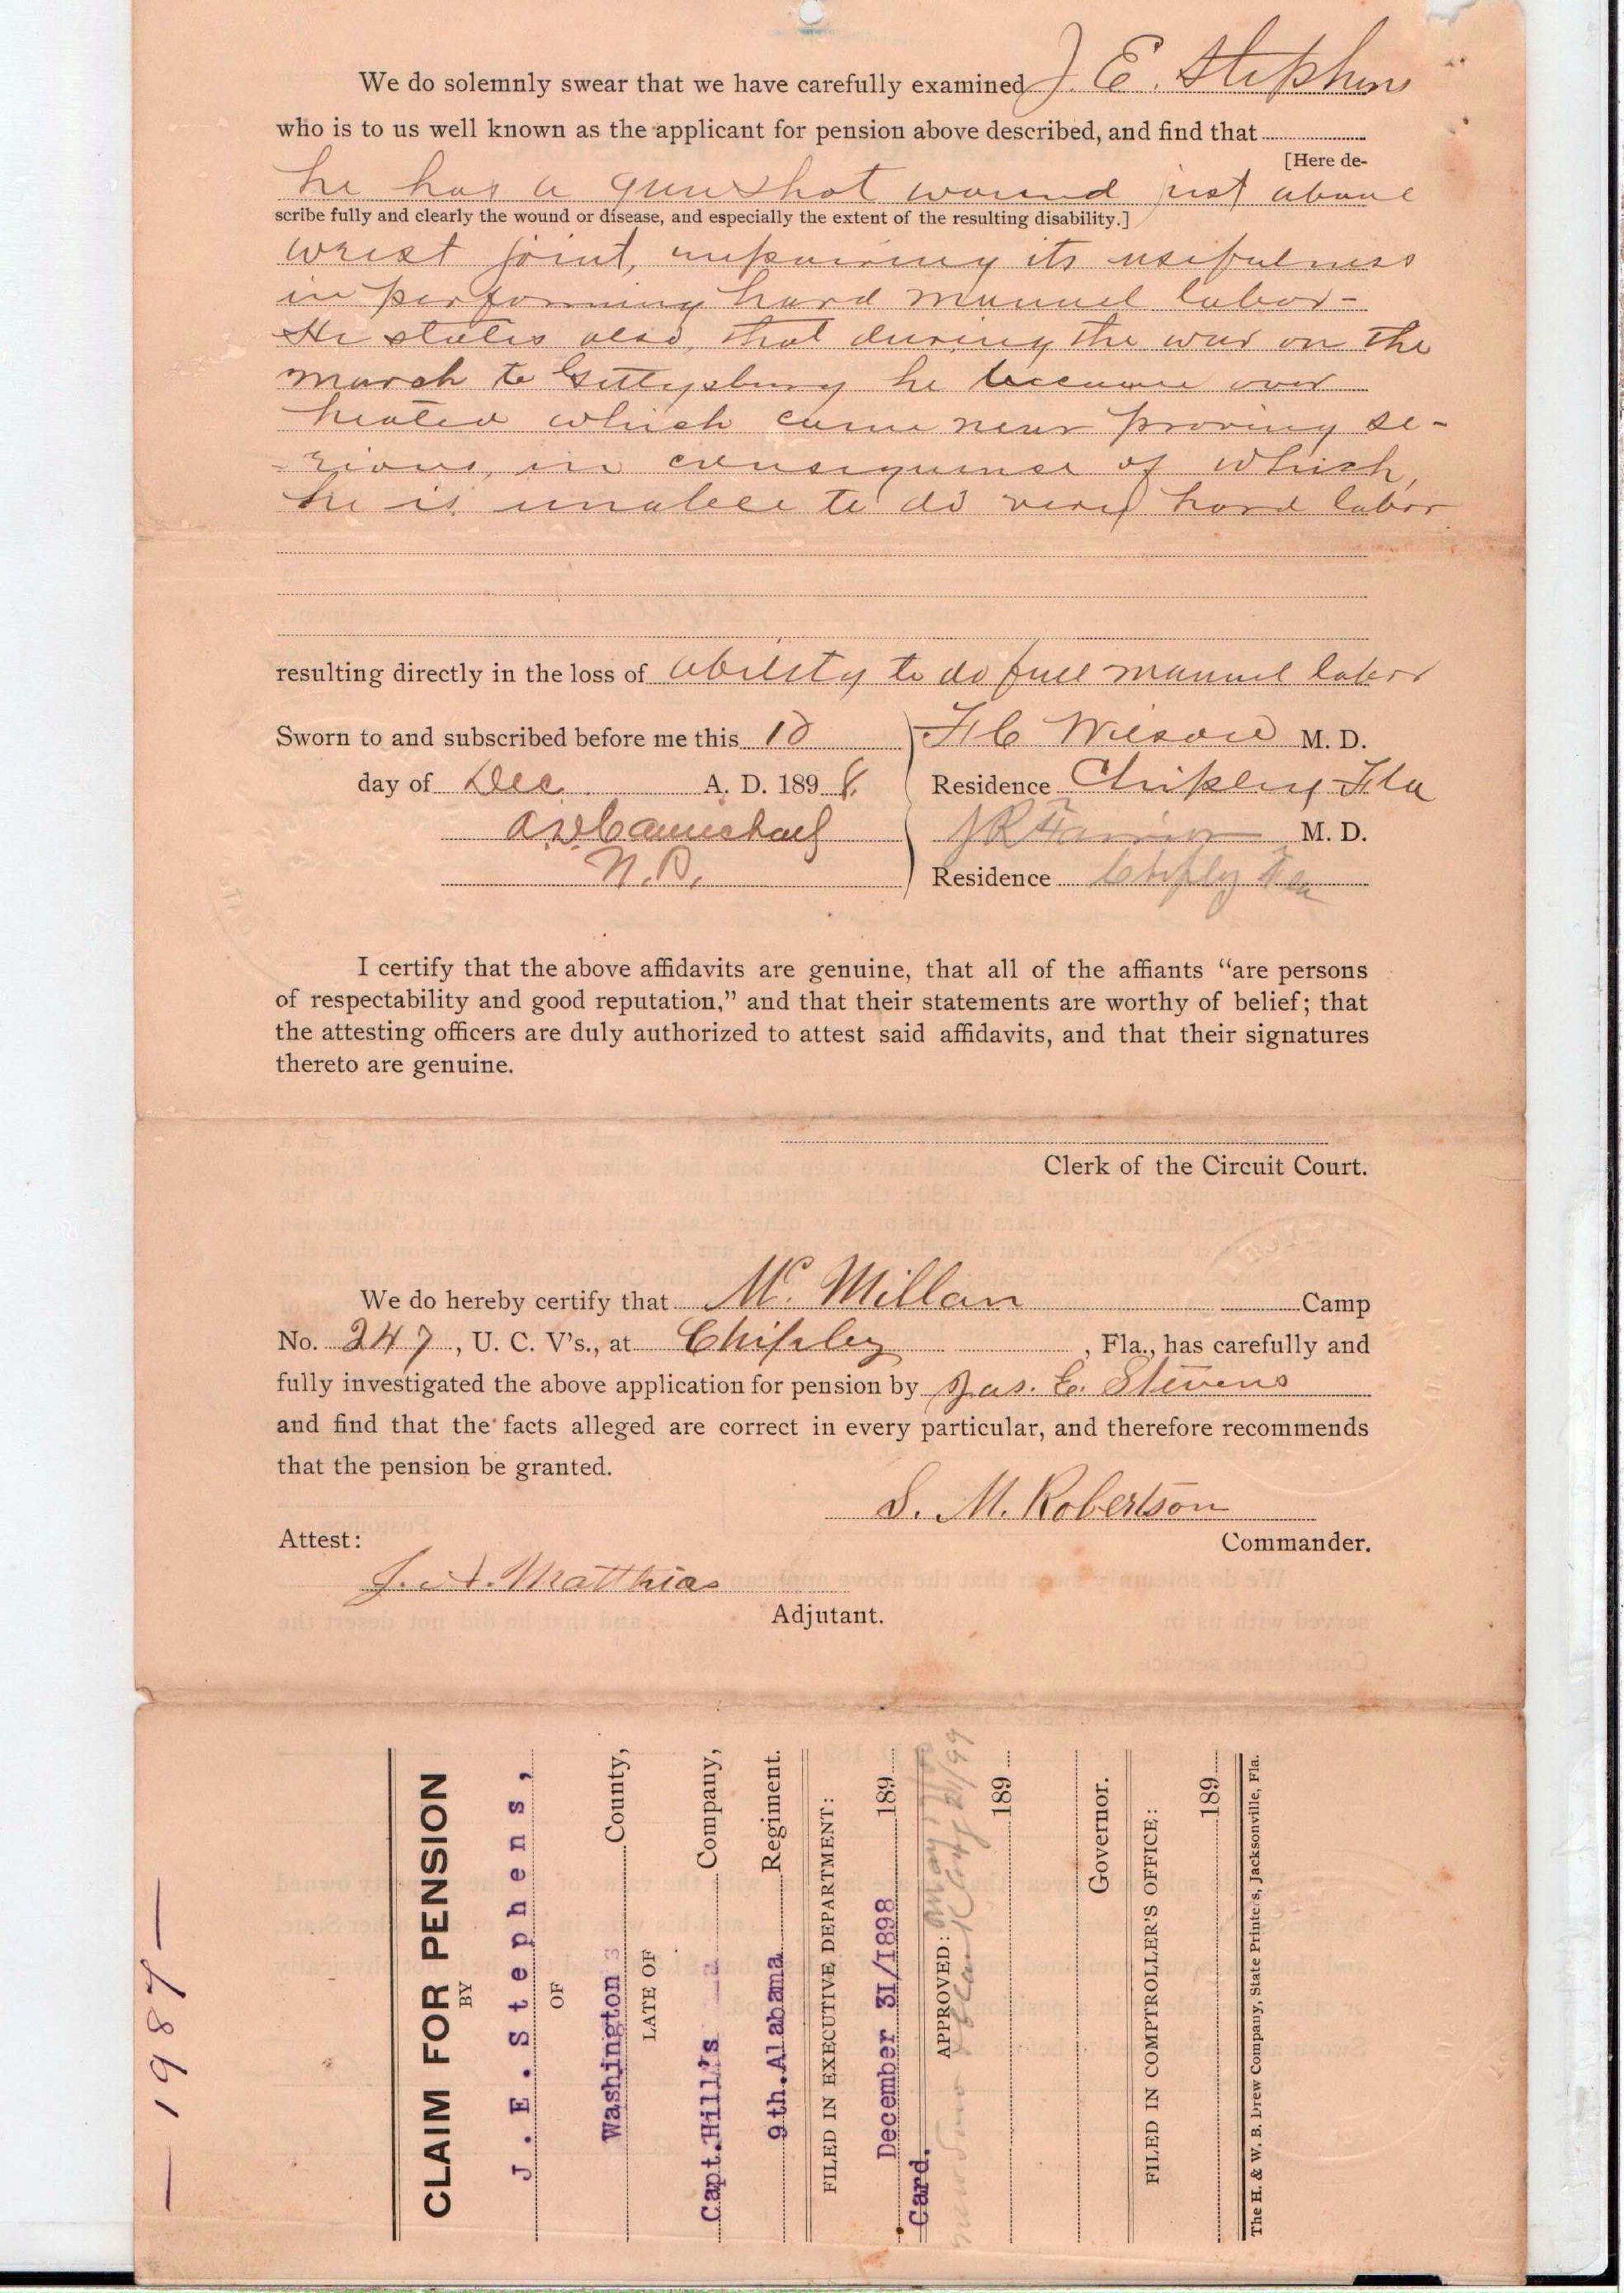 We do solemnly swear that we have carefully examined J. E. Stephens
who is to us well known as the applicant for pension above described, and find that
[Here de-
he has a gun shot wound just above
scribe fully and clearly the wound or disease, and especially the extent of the resulting disability.]
wrist joint, impairing its usefulness
in performing hard manuel labor-
He states also, that during the war on the
march to Gettysburg he became over
heated which came near proving se-
rious, in consequence of which,
he is unable to do very hard labor
resulting directly in the loss of ability to do full manuel labor
Sworn to and subscribed before me this 10
F C Wilson M. D.
day of Dec A. D. 1898.
Residence Chipley Fla
M. D.
N.P.
Residence Chipley Fla
I certify that the above affidavits are genuine, that all of the affiants "are persons
of respectability and good reputation," and that their statements are worthy of belief; that
the attesting officers are duly authorized to attest said affidavits, and that their signatures
thereto are genuine.
Clerk of the Circuit Court.
We do hereby certify that Mc. Millan Camp
No. 247, U. C. V's., at Chipley, Fla., has carefully and
fully investigated the above application for pension by Jas. E. Stevens
and find that the facts alleged are correct in every particular, and therefore recommends
that the pension be granted.
S. M. Robertson
Attest:
Commander.
J. A. Matthias
Adjutant.
— 1987 —
CLAIM FOR PENSION
BY
J.E.Stephens,
OF
Washington County,
LATE OF
Capt.Hill's Company,
9th.Alabama Regiment.
FILED IN EXECUTIVE DEPARTMENT:
December 31/1898 189
Card.
APPROVED:
189
Governor.
FILED IN COMPTROLLER'S OFFICE:
189
The H. & W. B. Drew Company, State Printers, Jacksonville, Fla.